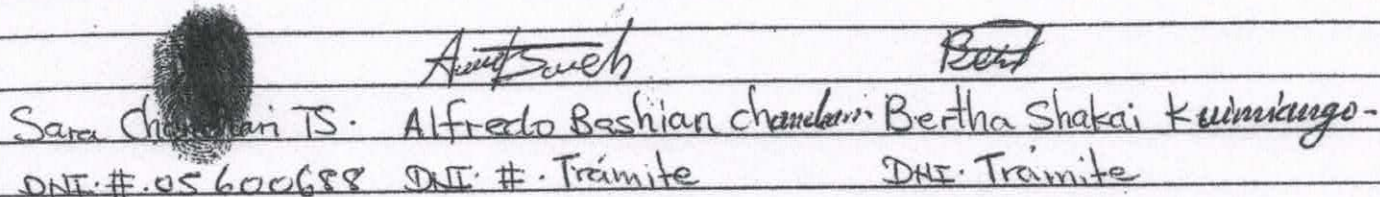 Sara TS. Alfredo Bashian Bertha Shakai Kuimiango-
DNI: #. 05600688 DNI. #. Trámite DNI. Trámite